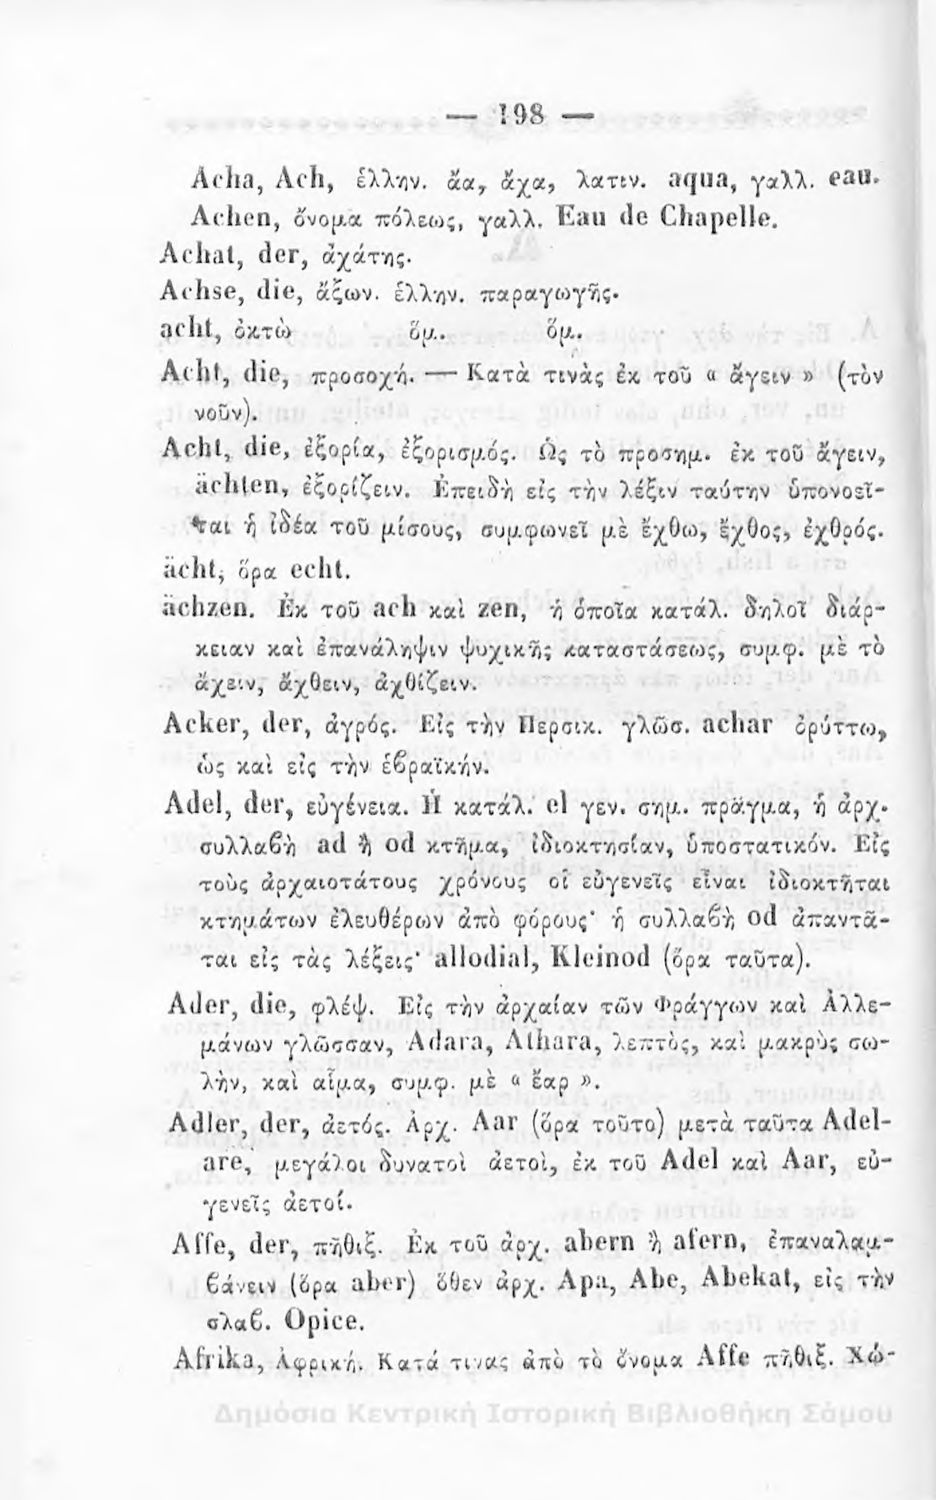 — 198 —
Acha, Ach, ἑλλην. ἄα, ἄχα, λατιν. aqua, γαλλ. eau.
Achen, ὄνομα πόλεως, γαλλ. Eau de Chapelle.
Achat, der, ἀχάτης.
Achse, die, ἄξων. ἑλλην. παραγωγῆς.
acht, ὀκτὼ ὅμ. ὅμ.
Acht, die, προσοχή. — Κατὰ τινὰς ἐκ τοῦ « ἄγειν » (τὸν
νοῦν).
Acht, die, ἐξορία, ἐξορισμός. Ὡς τὸ προσημ. ἐκ τοῦ ἄγειν,
ächten, ἐξορίζειν. Ἐπειδὴ εἰς τὴν λέξιν ταύτην ὑπονοεῖ-
ται ἡ ἰδέα τοῦ μίσους, συμφωνεῖ μὲ ἔχθω, ἔχθος, ἐχθρός.
ächt, ὅρα echt.
ächzen. Ἐκ τοῦ ach καὶ zen, ἡ ὁποῖα κατάλ. δηλοῖ διάρ-
κειαν καὶ ἐπανάληψιν ψυχικῆς καταστάσεως, συμφ. μὲ τὸ
ἄχειν, ἄχθειν, ἀχθίζειν.
Acker, der, ἀγρός. Εἰς τὴν Περσικ. γλῶσ. achar ὀρύττω,
ὡς καὶ εἰς τὴν ἑβραϊκήν.
Adel, der, εὐγένεια. Ἡ κατάλ. el γεν. σημ. πρᾶγμα, ἡ ἀρχ.
συλλαβὴ ad ἢ od κτῆμα, ἰδιοκτησίαν, ὑποστατικόν. Εἰς
τοὺς ἀρχαιοτάτους χρόνους οἱ εὐγενεῖς εἶναι ἰδιοκτῆται
κτημάτων ἐλευθέρων ἀπὸ φόρους· ἡ συλλαβὴ od ἀπαντᾶ-
ται εἰς τὰς λέξεις· allodial, Kleinod (ὅρα ταῦτα).
Ader, die, φλέψ. Εἰς τὴν ἀρχαίαν τῶν Φράγγων καὶ Ἀλλε-
μάνων γλῶσσαν, Adara, Athara, λεπτὸς, καὶ μακρὺς σω-
λὴν, καὶ αἷμα, συμφ. μὲ « ἔαρ ».
Adler, der, ἀετός. Ἀρχ. Aar (ὅρα τοῦτο) μετὰ ταῦτα Adel-
are, μεγάλοι δυνατοὶ ἀετοὶ, ἐκ τοῦ Adel καὶ Aar, εὐ-
γενεῖς ἀετοί.
Affe, der, πῆθιξ. Ἐκ τοῦ ἀρχ. abern ἢ afern, ἐπαναλαμ-
βάνειν (ὅρα aber) ὅθεν ἀρχ. Apa, Abe, Abekat, εἰς τὴν
σλαβ. Opice.
Afrika, Ἀφρική. Κατά τινας ἀπὸ τὸ ὄνομα Affe πῆθιξ. Χώ-
Δημόσια Κεντρική Ιστορική Βιβλιοθήκη Σάμου